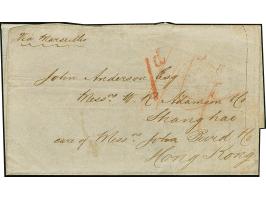 Via Marseilles
John Anderson Esq
Messrs W. R. Adamson & Co
Shanghae
care of Messrs John Burd & Co
Hong Kong